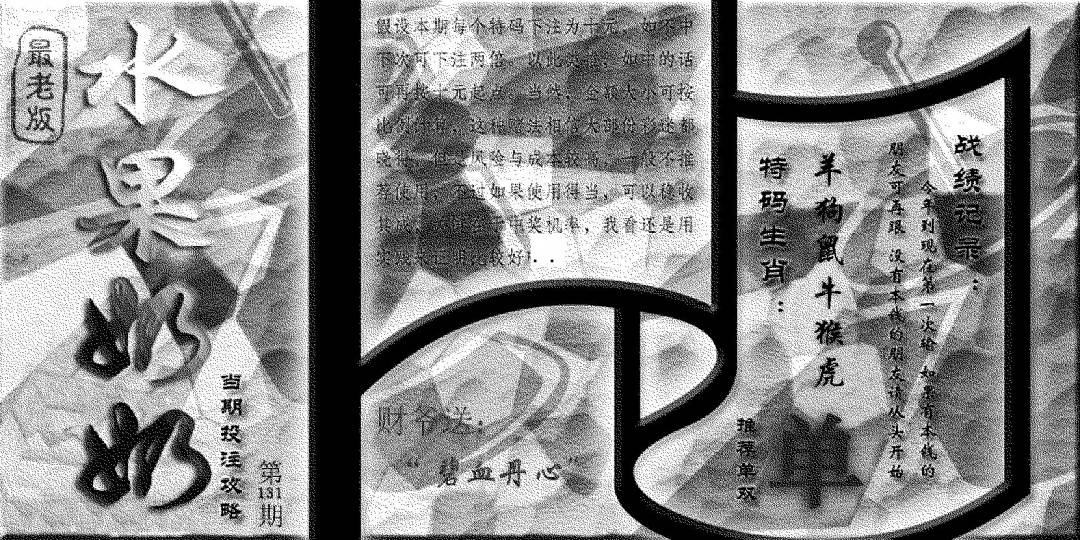 最老版
水果奶奶
当期投注攻略
第131期
假设本期每个特码下注为十元，如不中
下次可下注两倍，以此类推，如中的话
可再按十元起点，当然，金额大小可按
比例计算，这种赌法相信大部份彩迷都
晓得，但是风险与成本较高，一般不推
荐使用，不过如果使用得当，可以稳收
中奖机率，我看还是用
比较好！..
财爷送：
“碧血丹心”
战绩记录：
今年到现在第一次输 如果有本钱的
朋友可再跟 没有本钱的朋友请从头开始
羊狗鼠牛猴虎
特码生肖：
推荐单双
单